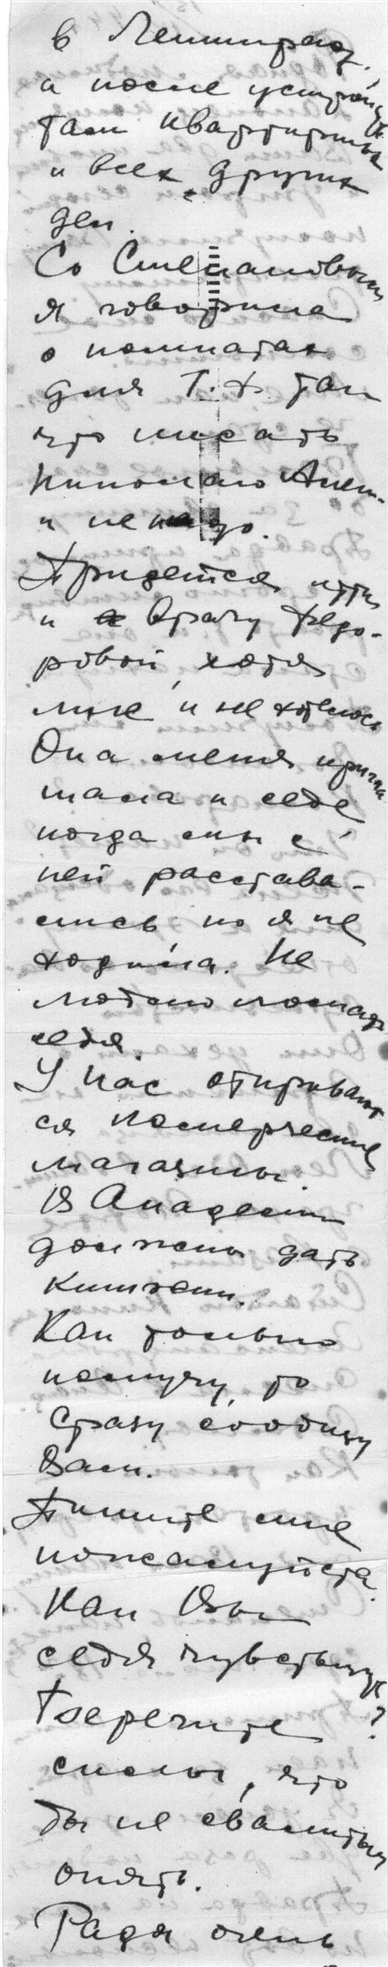 в Ленинград,
и после устройств
там квартирных
и всех других
дел.
Со Степановым
я говорила
о комнатах
для Т. Х. так
что писать
Николаю Алек.
и не надо.
Придется идти
и к врачу Федо-
ровой, хотя
мне и не хотелось
Она меня пригла
шала к себе
когда мы с
ней расстава-
лись но я не
ходила. Не
люблю
себя.
У нас открывают
ся коммерческие
магазины.
В Академии
должны дать
книжки.
Как только
получу, то
сразу сообщу
Вам.
Пишите мне
пожалуйста.
Как Вы
себя чувствуете?
Берегите
силы, что
бы не свалиться
опять.
Рада очень